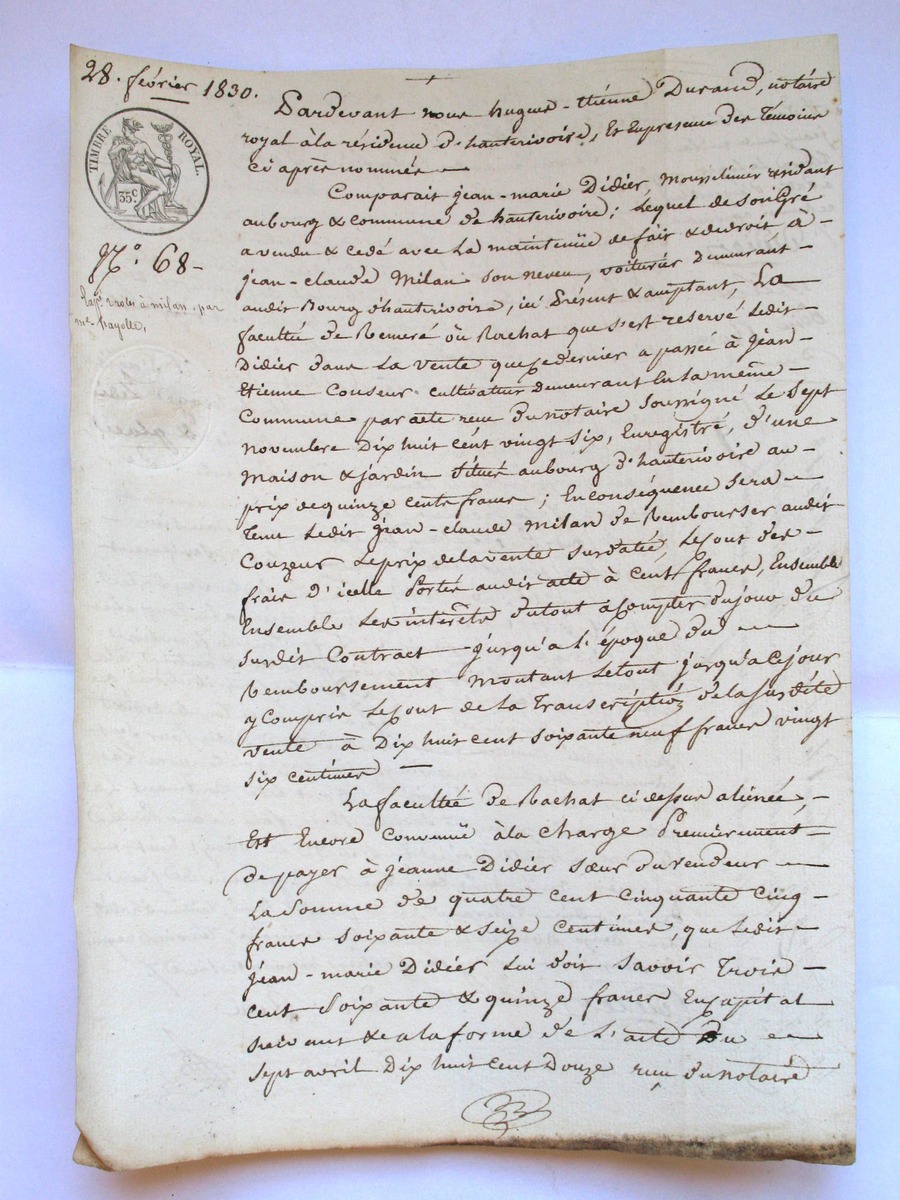 28. février 1830.
TIMBRE ROYAL.
35c.
N.° 68 -
à milan, par
Pardevant nous hugues-étienne Durand, notaire
royal à la résidence d'hauterivoire, Et En presence des Témoins
ci après nommés
Comparait jean-marie Didier, Mousselinier residant
aubourg & commune de hauterivoire; Lequel de son Gré
a vendu & cédé avec La maintenüe de fait & de droit, à
jean-claude Milan son Neveu, voiturier Demeurant
audit Bourg d'hauterivoire, ici Présent & acceptant, La
faculté de Remeré où Rachat que s'est reservé Ledit
Didier dans La Vente que ce dernier a passée à Jean
Etienne Couseur cultivateur Demeurant En La même
Commune par acte recu du notaire soussigné Le Sept
novembre Dix huit cent vingt six, Enregistré, d'une
maison & jardin situés aubourg d'hauterivoire au
prix de quinze cents francs; En conséquence sera
Tenu Ledit jean-claude Milan de Rembourser audit
Couzeur Le prix de la vente susdatée, Le cout des
frais d'icelle Portés audit acte à cent francs, Ensemble
Ensemble Les intérêts du tout à compter du jour du
susdit Contract jusqu'a L'époque du
Remboursement montant Le tout jusqu'a ce jour
y Compris Le cout de La Transcription de la susdite
vente à Dix huit cent soixante neuf francs vingt
six centimes
La facultée de Rachat ci dessus aliénée,
Est Encore convenüe à la charge Premièrement
de payer à jeanne Didier sœur du vendeur
La somme de quatre cent cinquante cinq
francs soixante & seize centimes, que Ledit
jean-marie Didier Lui doit savoir Trois
cent soixante & quinze francs En capital
suivant & a la forme de L'acte du
sept avril Dix huit cent Douze reçu du notaire